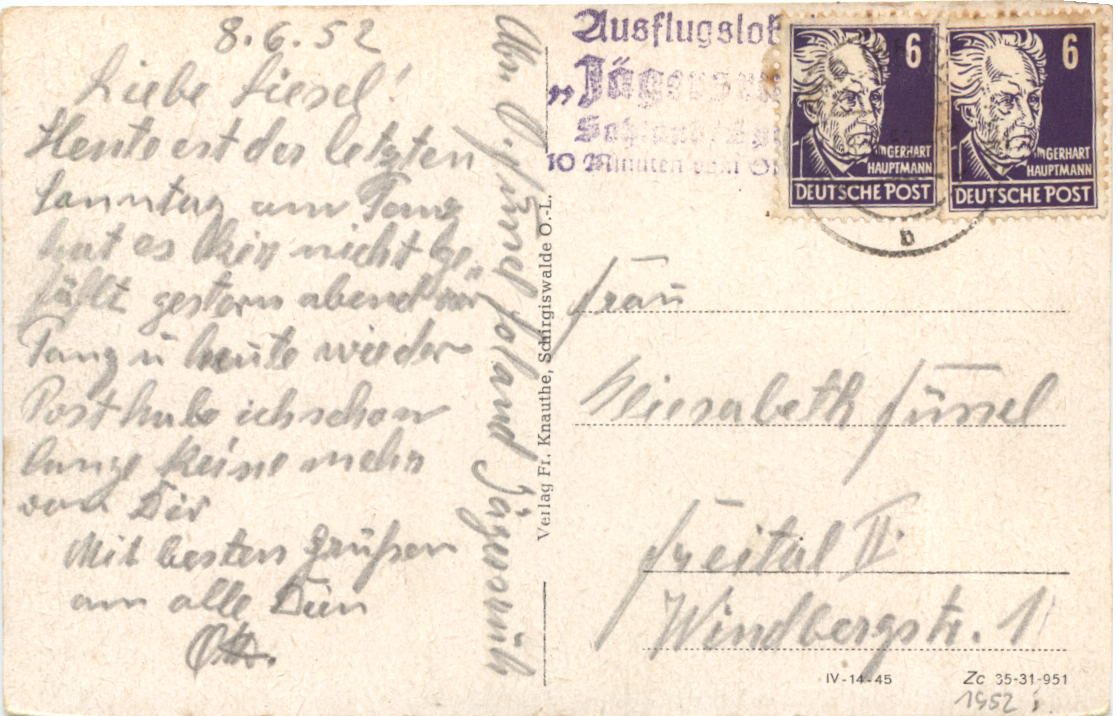 8.6.52
Liebe Liesel!
Heute ist der letzten
Sonntag am Tanz
hat es hier nicht ge-
fällt gestern abend war
Tanz u heute wieder
Post habe ich schon
lange keine mehr
von Dir
Mit besten Grüßen
an alle Dein
Otto.
Ausflugslok
„Jägers
10 Minuten vom
6
GERHART
HAUPTMANN
DEUTSCHE POST
6
GERHART
HAUPTMANN
DEUTSCHE POST
Verlag Fr. Knauthe, Schirgiswalde O.-L.
Frau
Eliesabeth Füssel
Freital II
Windbergstr. 1
IV-14-45
Zc 35-31-951
1952